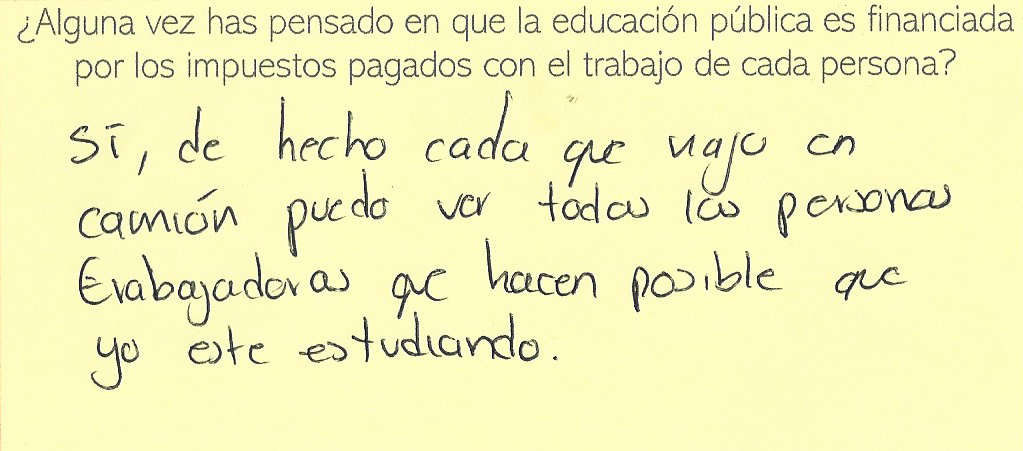 ¿Alguna vez has pensado en que la educación pública es financiada
por los impuestos pagados con el trabajo de cada persona?
Sí, de hecho cada que viajo en
camión puedo ver todas las personas
trabajadoras que hacen posible que
yo este estudiando.